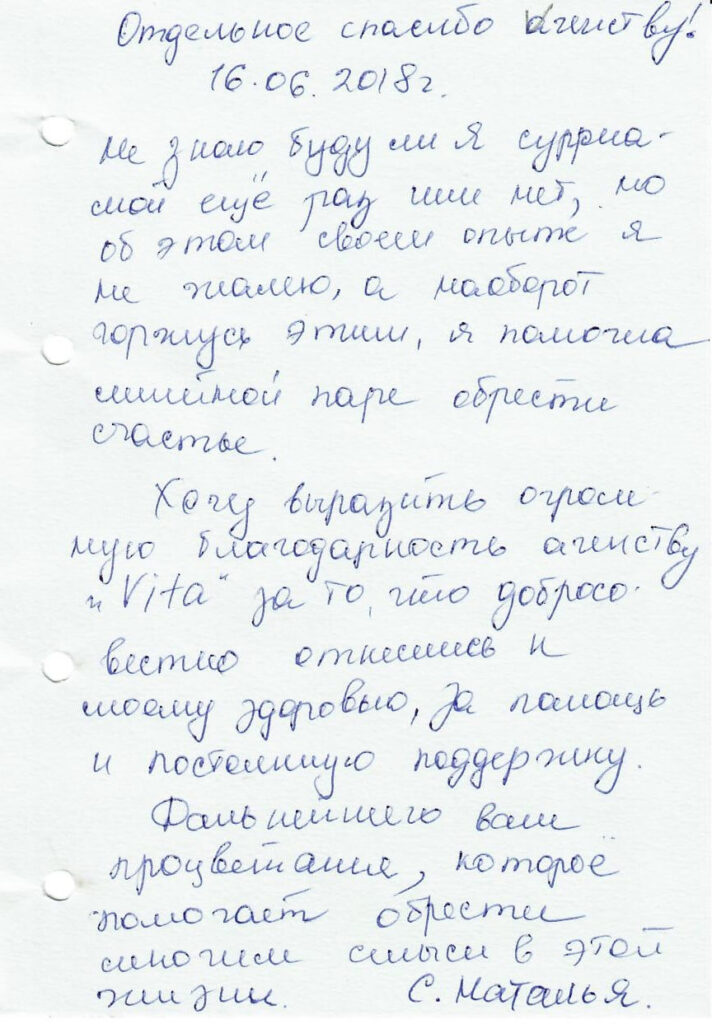 Отдельное спасибо агенству!
16.06.2018г.
Не знаю буду ли я суррма-
мой ещё раз или нет, но
об этом своем опыте я
не жалею, а наоборот
горжусь этим, я помогла
милой паре обрести
счастье.
Хочу выразить огром-
ную благодарность агенству
„Vita" за то, что добросо-
вестно отнеслись к
моему здоровью, за помощь
и постоянную поддержку.
Дальнейшего вам
процветания, которое
помогает обрести
многим смысл в этой
жизни. С. Наталья.